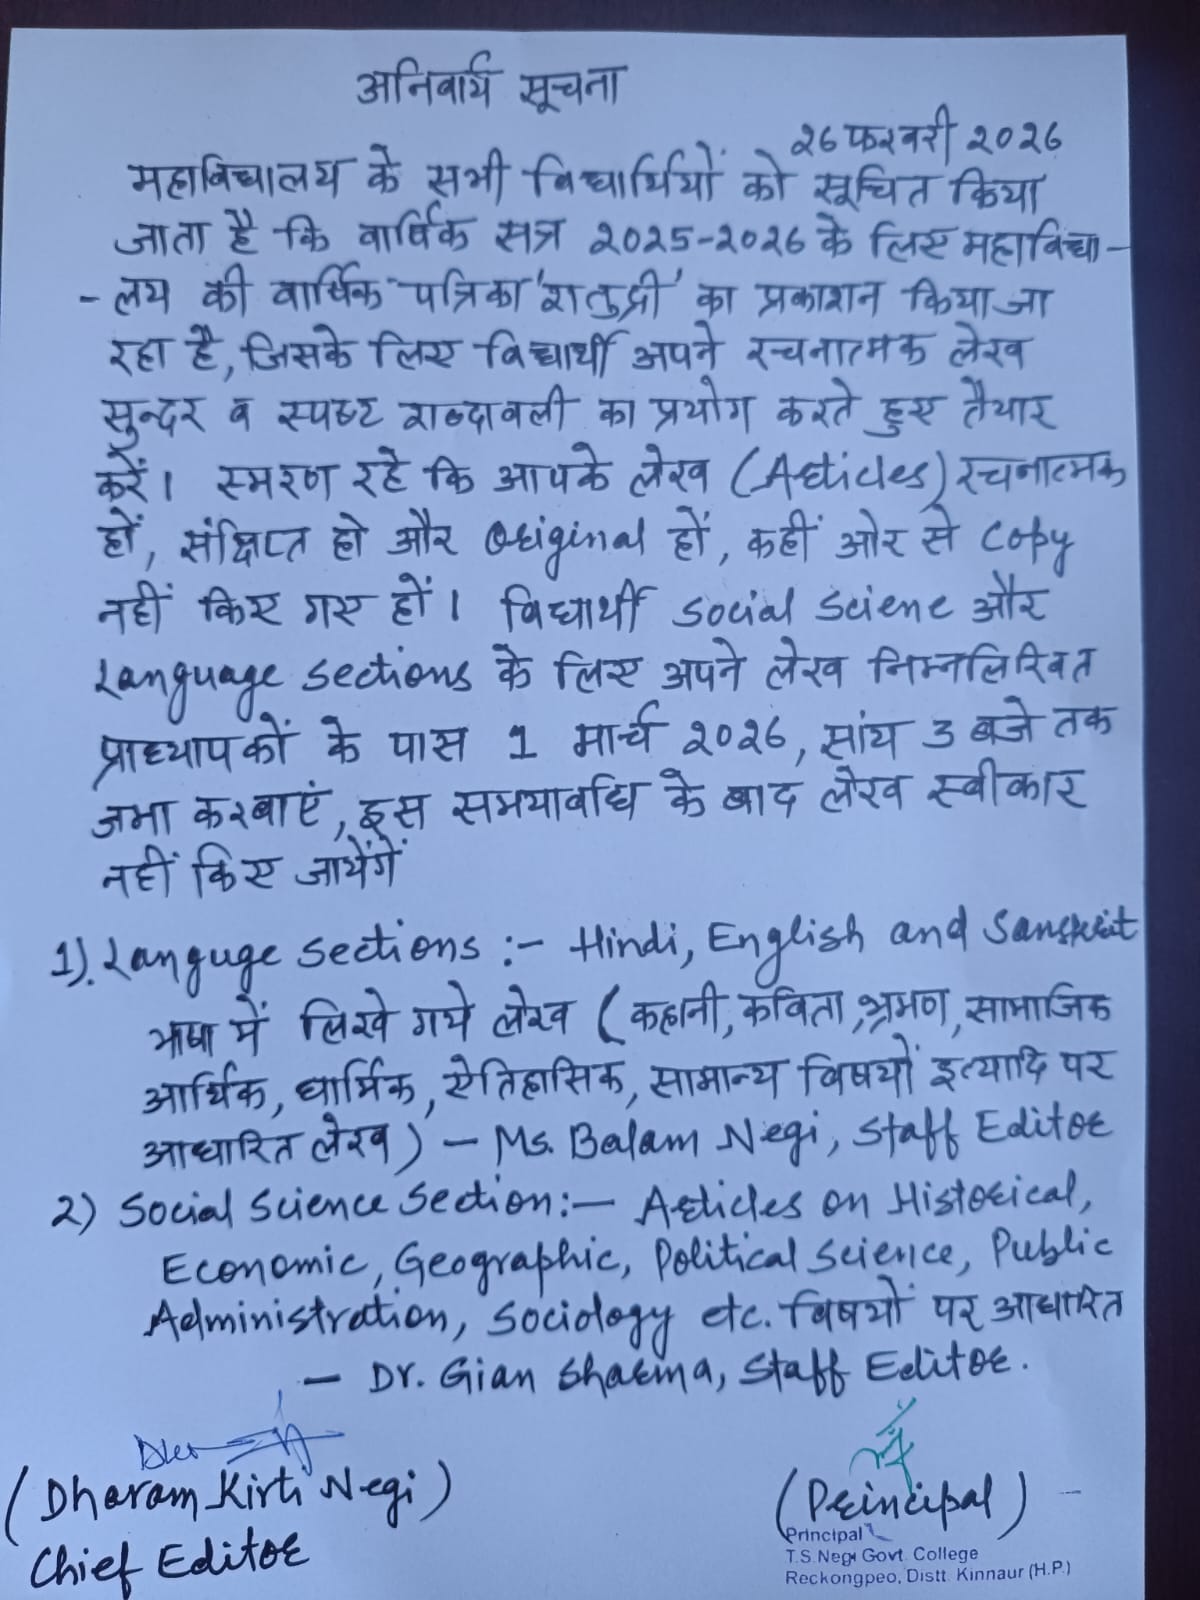 अनिवार्य सूचना
26 फरवरी 2026
महाविद्यालय के सभी विद्यार्थियों को सूचित किया
जाता है कि वार्षिक सत्र 2025-2026 के लिए महाविद्या-
- लय की वार्षिक पत्रिका 'शतुद्री' का प्रकाशन किया जा
रहा है, जिसके लिए विद्यार्थी अपने रचनात्मक लेख
सुन्दर व स्पष्ट शब्दावली का प्रयोग करते हुए तैयार
करें। स्मरण रहे कि आपके लेख (Articles) रचनात्मक
हों, संक्षिप्त हो और Original हों, कहीं ओर से Copy
नहीं किए गए हों। विद्यार्थी Social Scienc और
Language Sections के लिए अपने लेख निम्नलिखित
प्राध्यापकों के पास 1 मार्च 2026, सांय 3 बजे तक
जमा करबाएं, इस समयावधि के बाद लेख स्वीकार
नहीं किए जायेंगें
1). Languge Sections :- Hindi, English and Sanskrit
भाषा में लिखे गये लेख (कहानी, कविता, भ्रमण, सामाजिक
आर्थिक, धार्मिक, ऐतिहासिक, सामान्य विषयों इत्यादि पर
आधारित लेख) - Ms. Balam Negi, Staff Editor
2) Social Science Section:- Articles on Historical,
Economic, Geographic, Political Science, Public
Administration, Sociology etc. विषयों पर आधारित
- Dr. Gian Sharma, Staff Editor.
(Dharam Kirti Negi)
Chief Editor
(Principal)
Principal
T.S. Negi Govt. College
Reckongpeo, Distt. Kinnaur (H.P.)